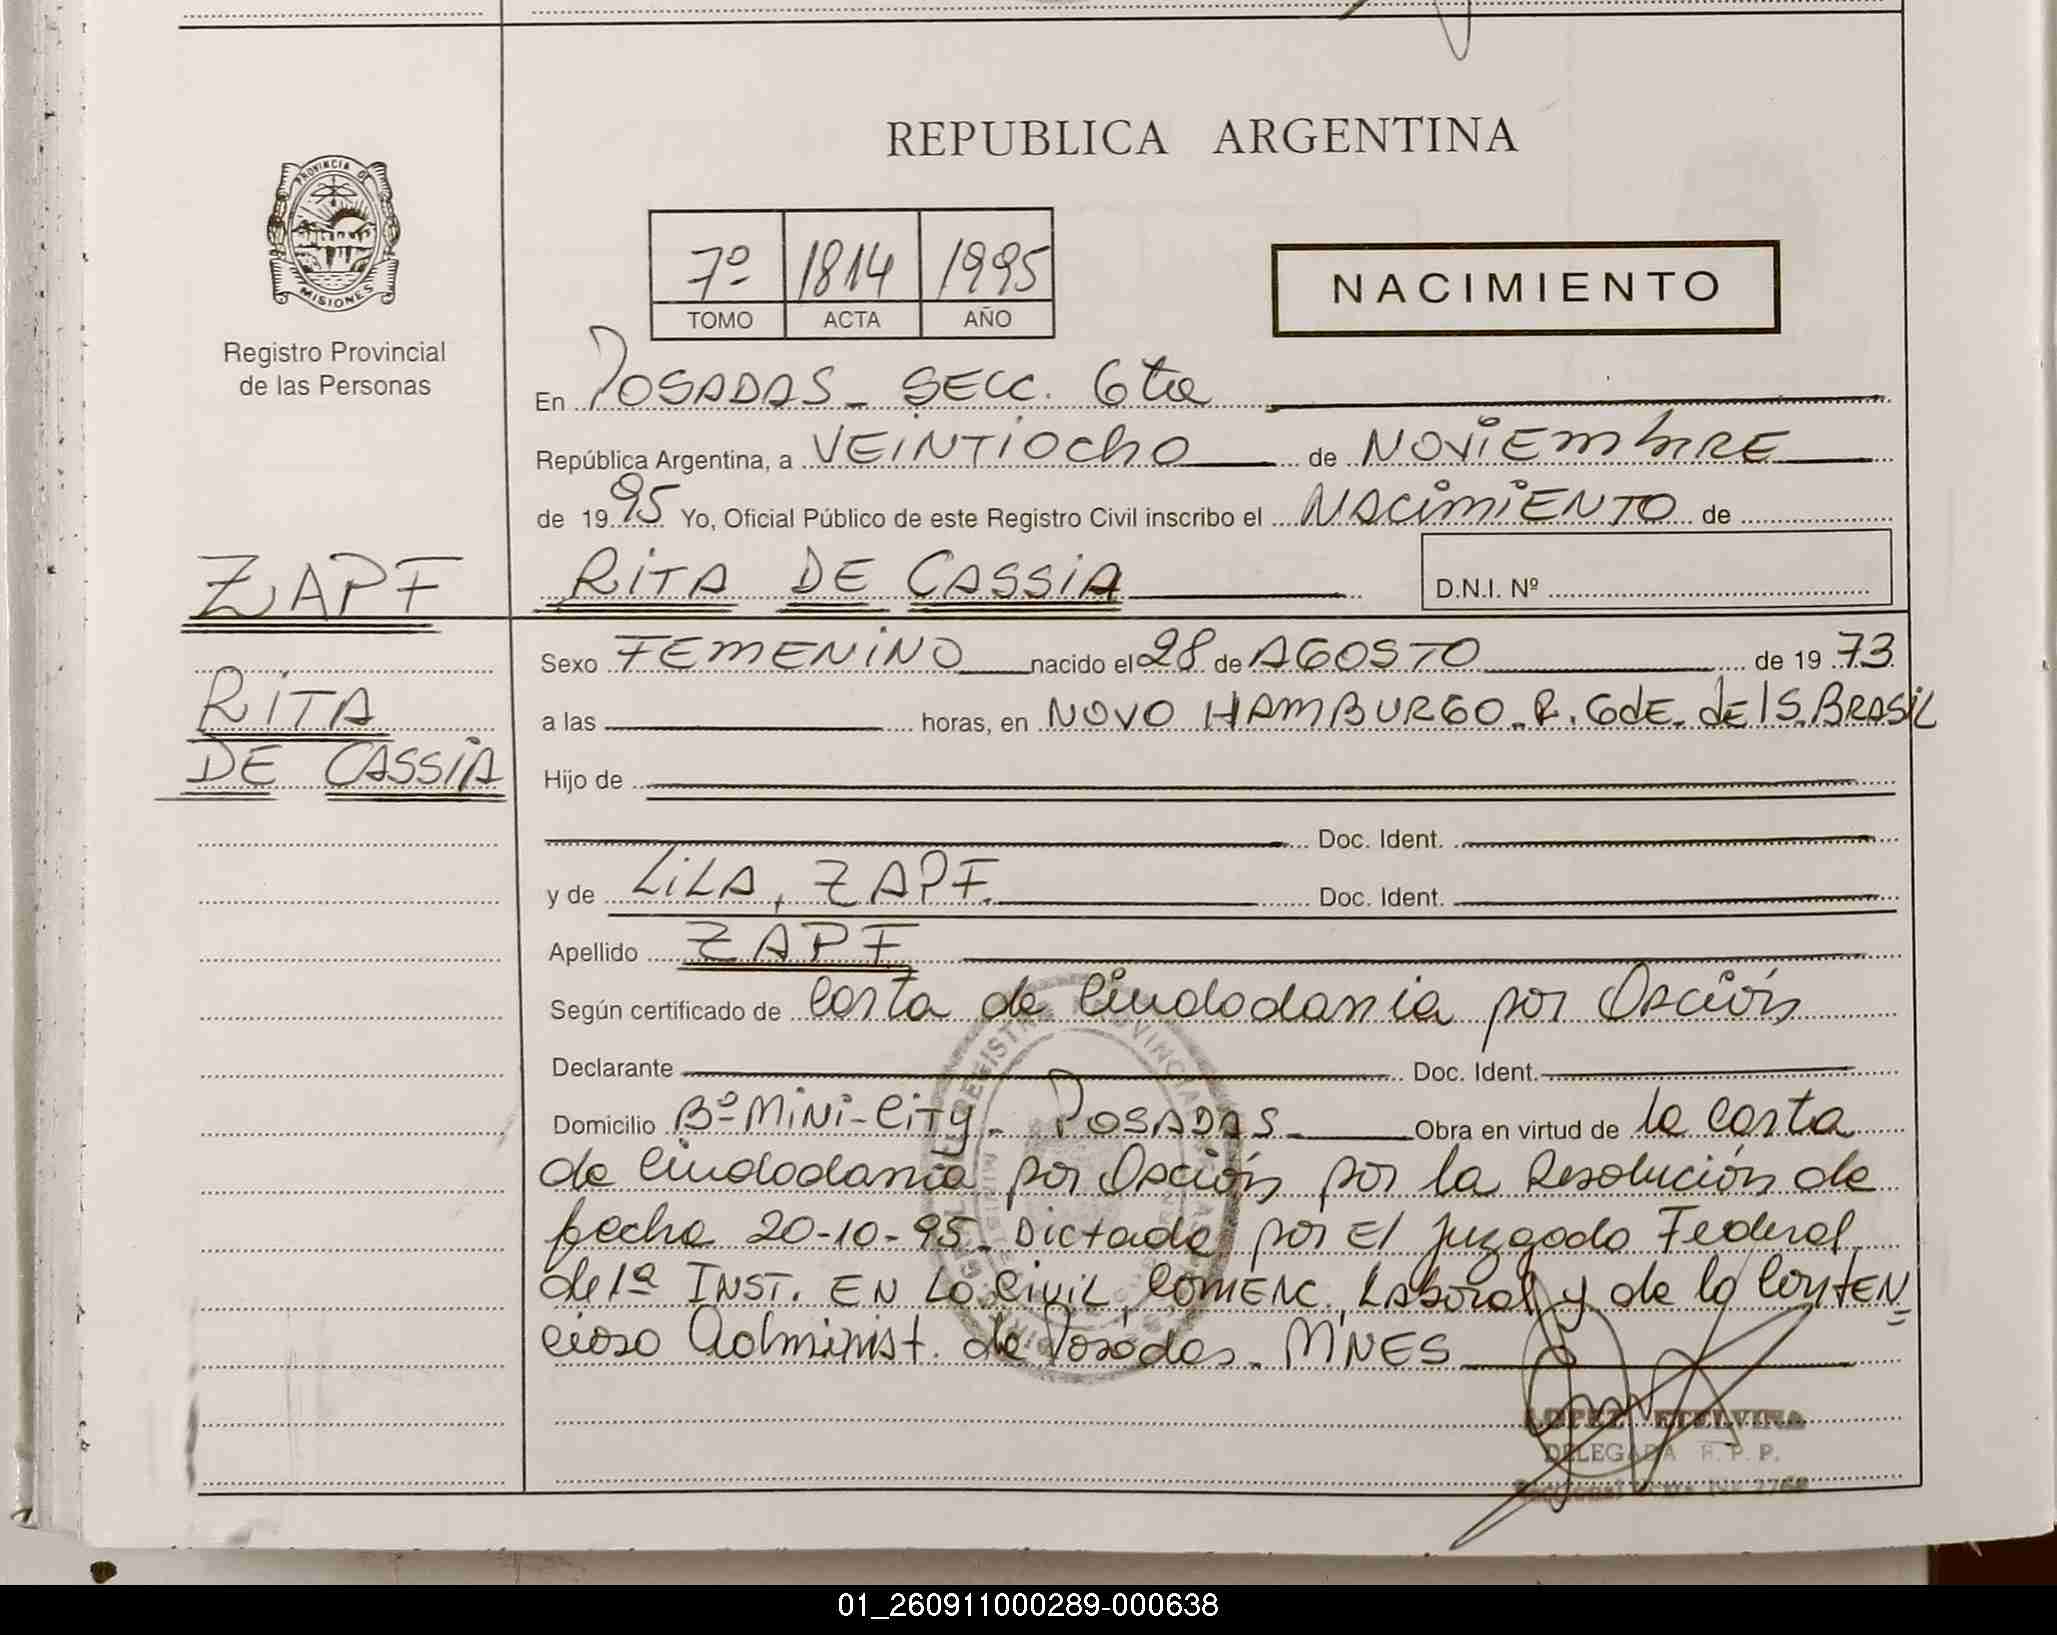 REPUBLICA ARGENTINA
PROVINCIA DE
MISIONES
Registro Provincial
de las Personas
7º 1814 1995
TOMO ACTA AÑO
NACIMIENTO
En POSADAS - SECC. 6ta
República Argentina, a VEINTIOCHO de NOVIEMBRE
de 1995 Yo, Oficial Público de este Registro Civil inscribo el NACIMIENTO de
ZAPF
RITA DE CASSIA
D.N.I. Nº
RITA
DE CASSIA
Sexo FEMENINO nacido el 28 de AGOSTO de 1973
a las horas, en NOVO HAMBURGO - R. GdE. dEl S. BRASIL
Hijo de
Doc. Ident.
y de LILA, ZAPF. Doc. Ident.
Apellido ZAPF
Según certificado de Carta de Ciudadania por Opción
Declarante Doc. Ident.
Domicilio Bº MINI-CITY - POSADAS Obra en virtud de la carta
de Ciudadania por Opción por la Resolución de
fecha 20-10-95 - Dictada por El Juzgado Federal
de 1ª INST. EN Lo Civil, ComERC. Laboral y de lo ContEN-
cioso Administ. de Posadas - MNES
LOPEZ ETELVINA
DELEGADA R. P. P.
01_260911000289-000638